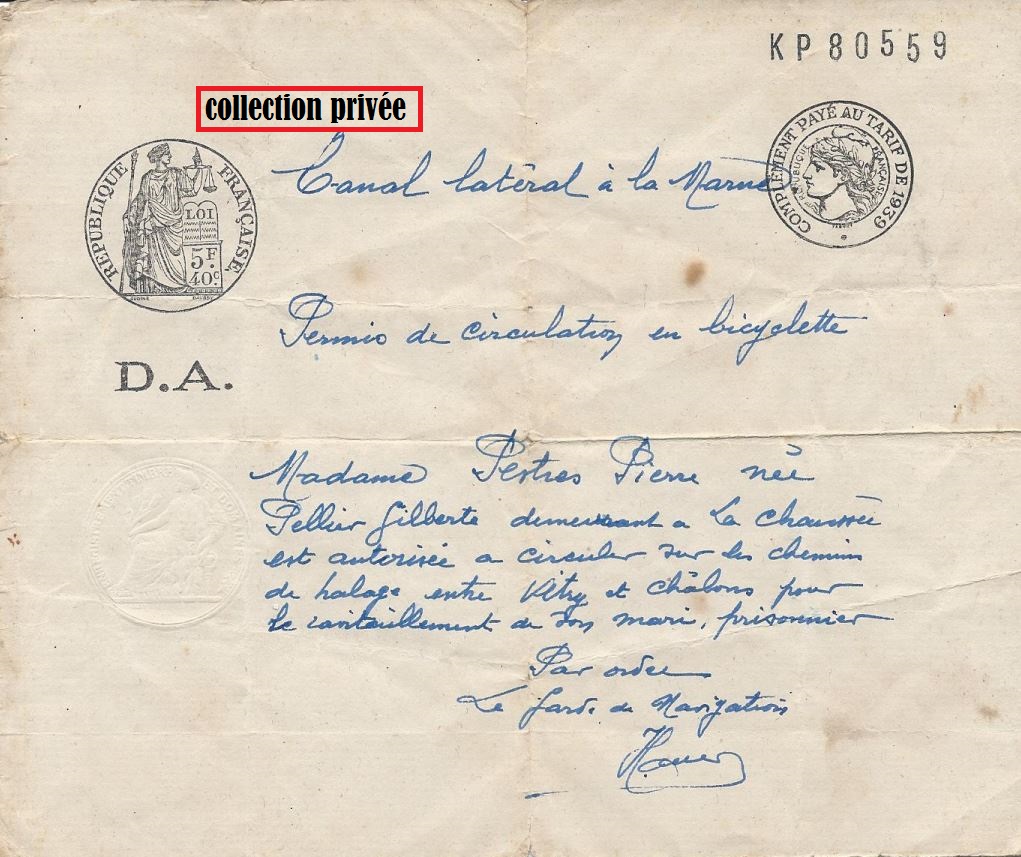 KP80559
collection privée
COMPLÉMENT PAYÉ AU TARIF DE 1939
RÉPUBLIQUE FRANÇAISE
RÉPUBLIQUE FRANÇAISE
LOI
5F
40c
Canal latéral à la Marne
Permis de circulation en bicyclette
D.A.
Madame Pestres Pierre née
Pellier Gilberte demeurant a La chaussée
est autorisée a circuler sur les chemins
de halage entre Vitry et châlons pour
le ravitaillement de son mari, prisonnier
Par ordre
Le Garde de Navigation